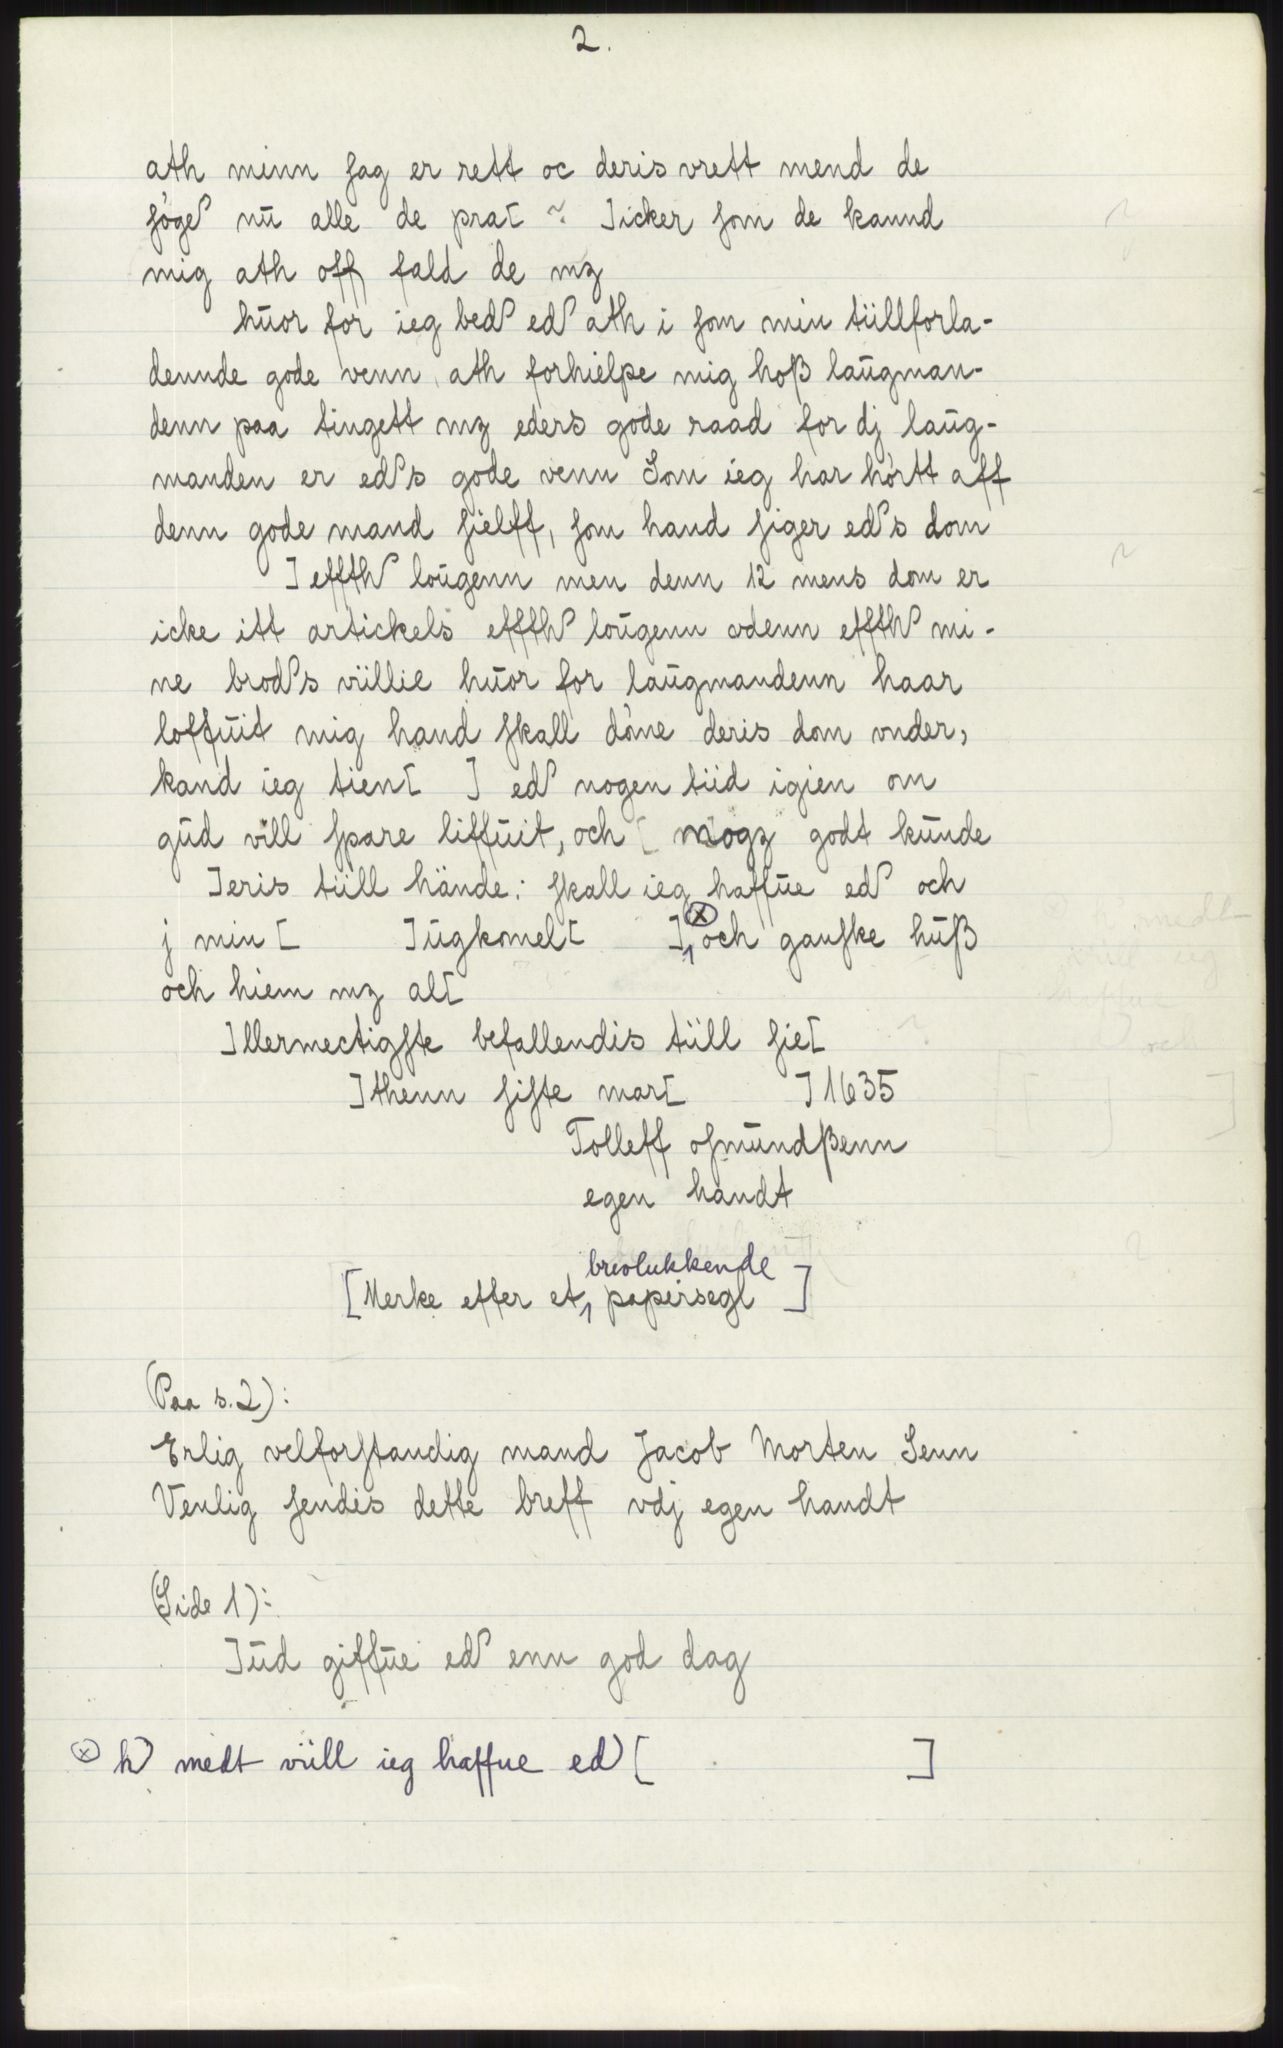 2.
ath minn sag er rett oc deris vrett mend de
søger nu alle de pra[ ~ ]icker som de kannd
mig ath off fald de mz
huor for ieg beder eder ath i som min tüllforla-
dennde gode venn, ath forhielpe mig hoß laugman-
denn paa tingett mz eders gode raad for dj laug-
manden er eders gode venn Som ieg har hørtt aff
denn gode mand sielff, som hand siger eders dom
] effther lougenn men denn 12 mens dom er
icke itt artickels effther lougenn vdenn effther mi-
ne broders villie huor for laugmandenn haar
loffuit mig hand skall døme deris dom vnder,
kand ieg tien[ ] eder nogen tiid igien om
gud vill spare liffuit, och [ mogz godt kunde
]eris tüll hände: skall ieg haffue eder och
j min [ ]ugkomel[ ], ⊗ och ganske huß
och hiem mz al[
]llermectigste befallendis tüll sie[
] thenn siste mar[ ] 1635
Tolleff osmundßenn
egen handt
brevlukkende
[Merke efter et, papirsegl ]
(Paa s. 2):
Erlig velforstandig mand Jacob Morten Senn
Venlig sendis dette breff vdj egen handt
(Side 1):
]ud giffue eder enn god dag
⊗ her medt vüll ieg haffue eder [ ]